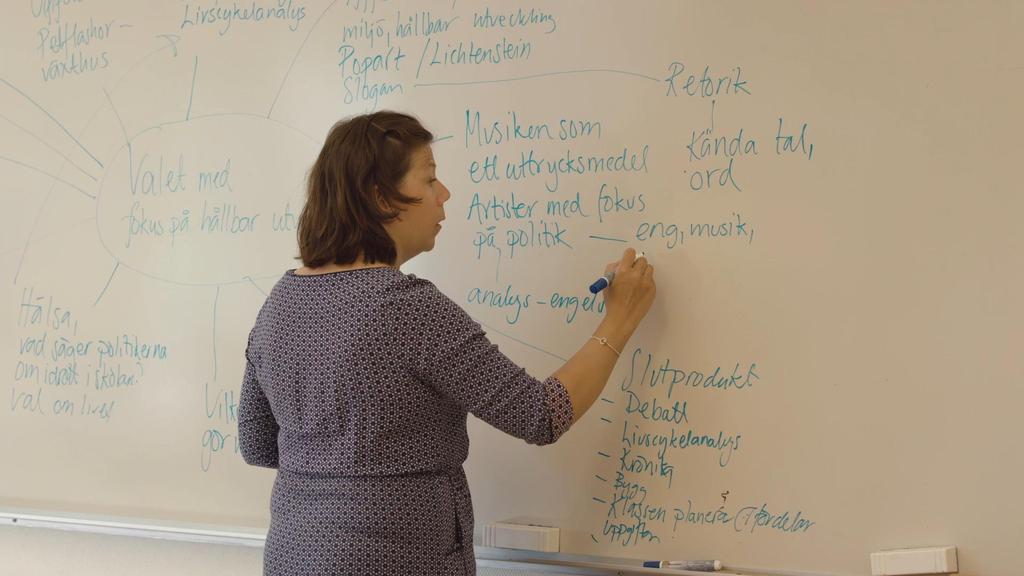 Livscykelanalys
Petflaskor-
växthus
miljö, hållbar utveckling
Popart / Lichtenstein
Slogan
Retorik
Kända tal,
ord
Valet med
fokus på hållbar
Musiken som
ett uttrycksmedel
Artister med fokus
på politik — eng, musik,
analys - engel
Hälsa,
vad säger politikerna
om idrott i skolan?
val om livet
Slutprodukt
- Debatt
- Livscykelanalys
- Krönika
- Bygg
- Klassen planera
uppgiften